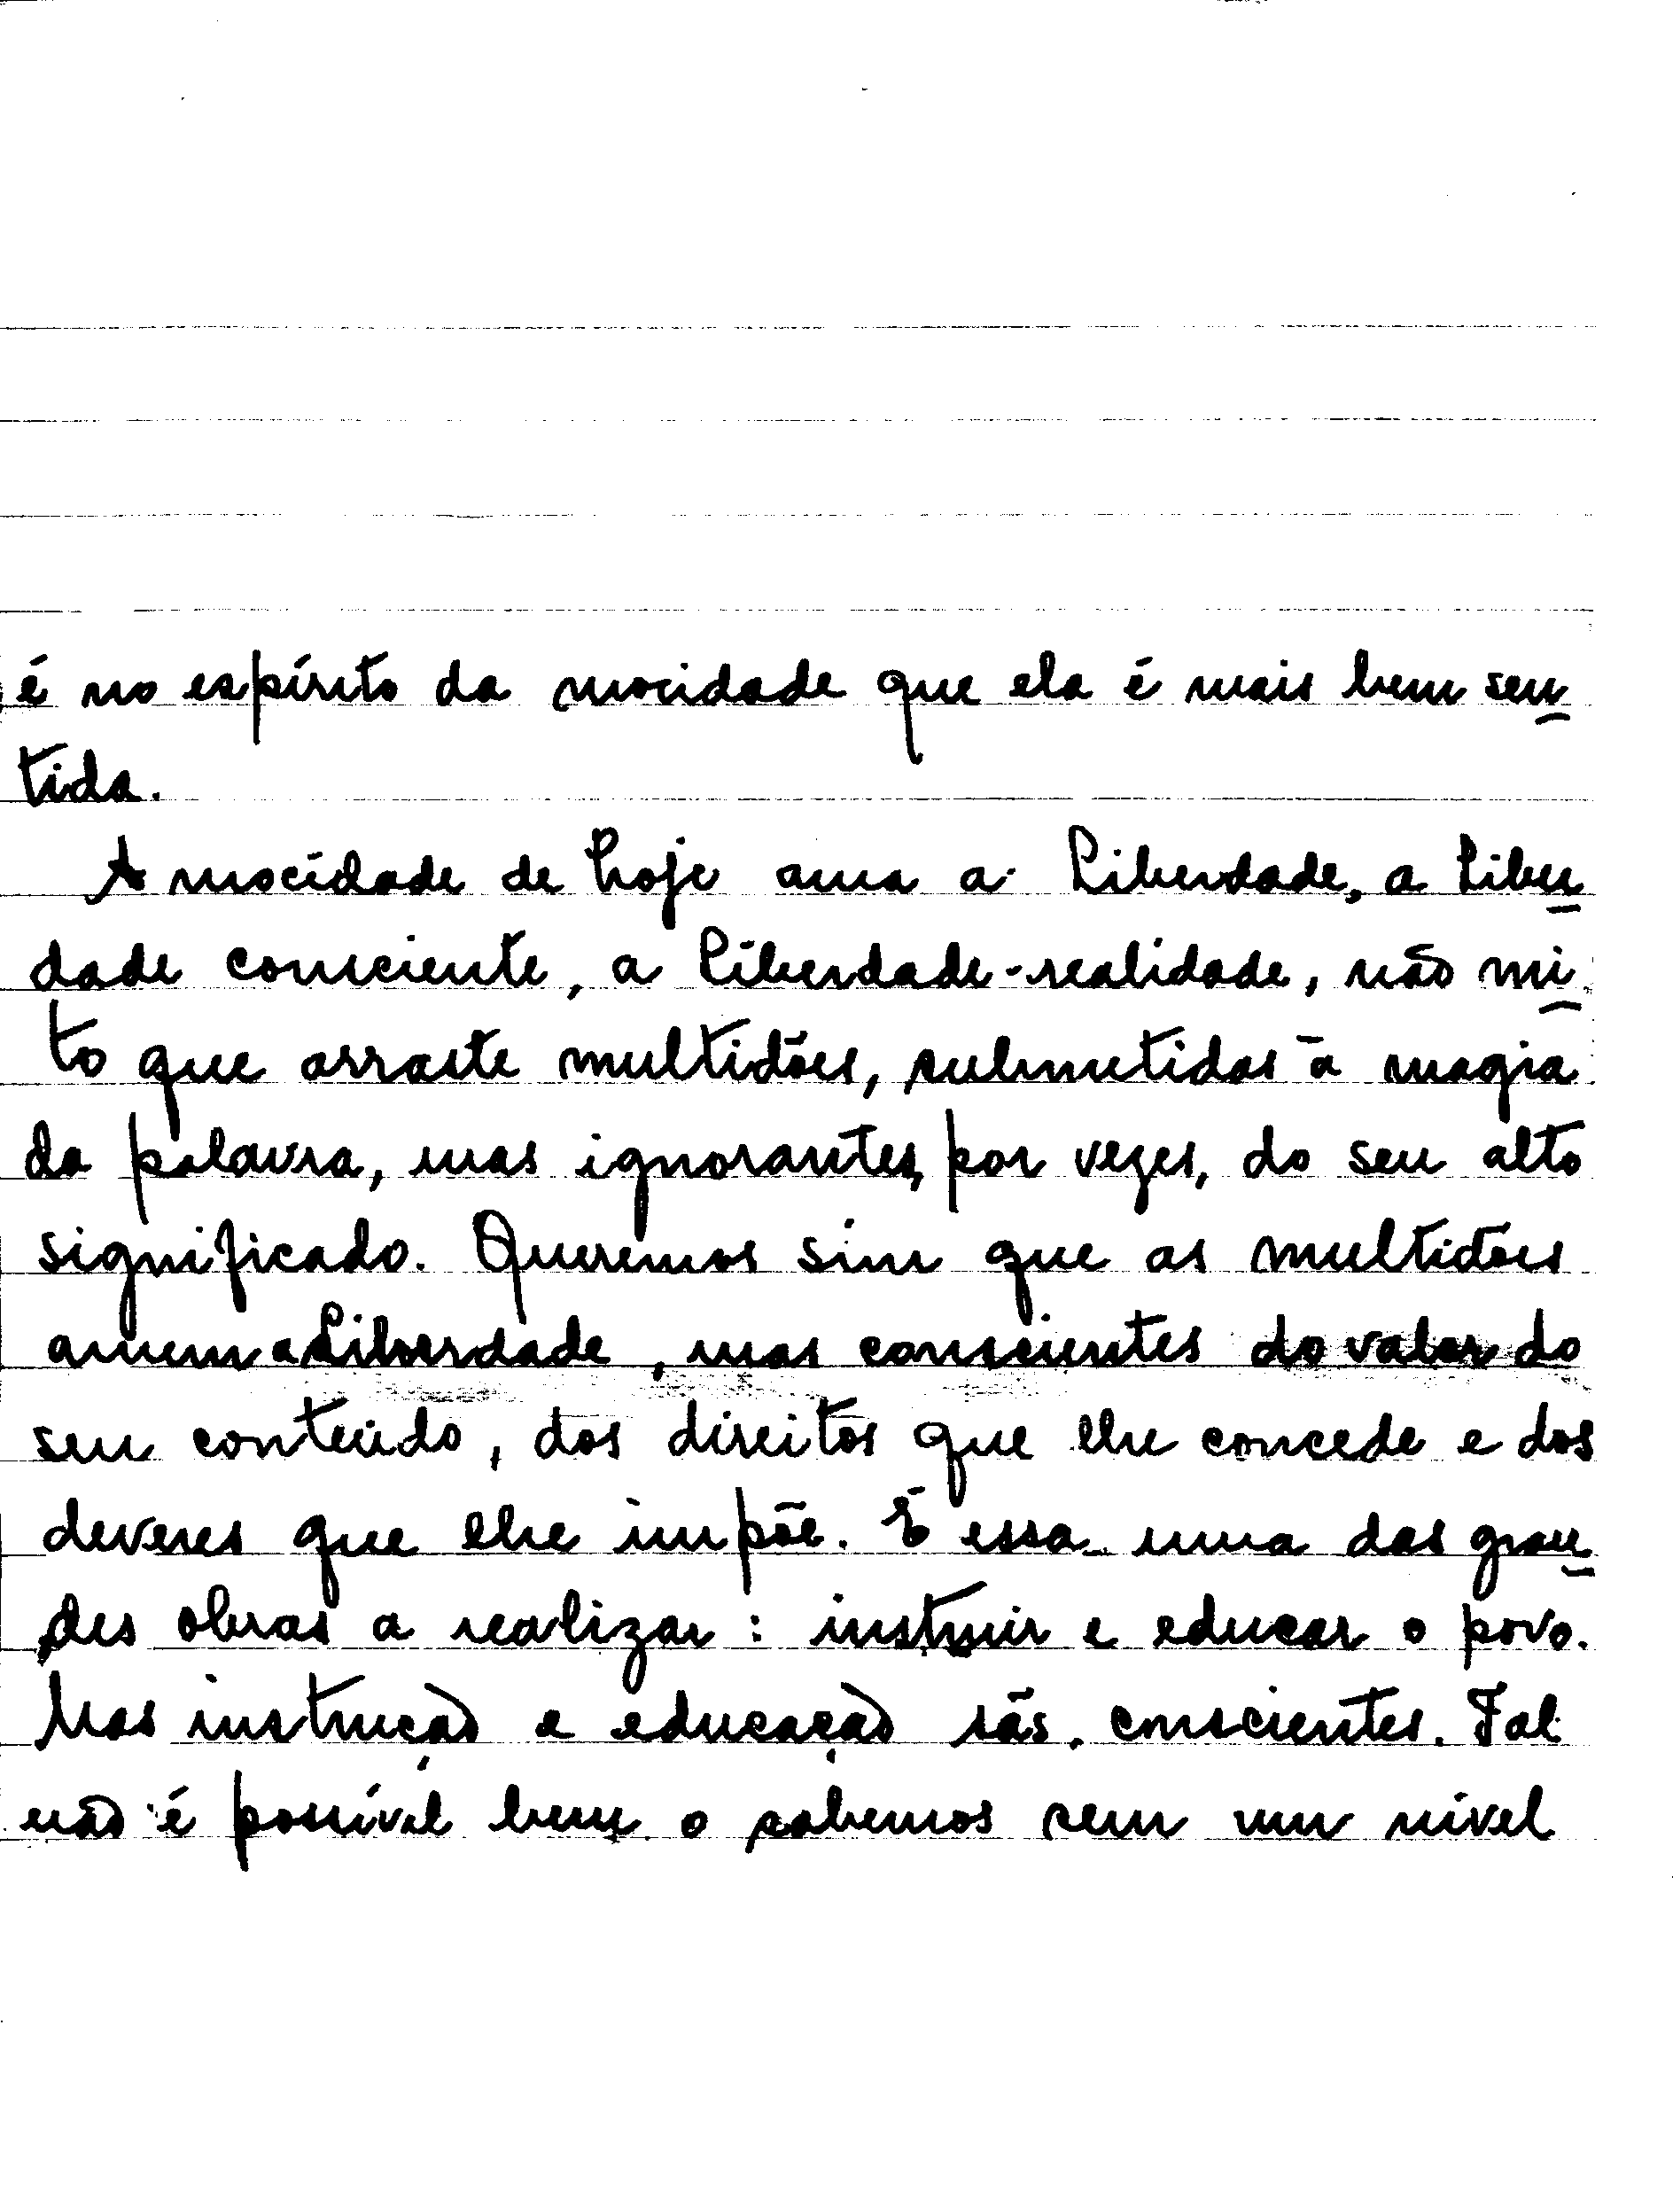 é no espírito da mocidade que ela é mais bem sen
tida.
A mocidade de hoje ama a Liberdade, a liber
dade consciente, a liberdade-realidade, não mi
to que arraste multidões, submetidas à magia
da palavra, mas ignorantes, por vezes, do seu alto
significado. Queremos sim que as multidões
amem a Liberdade, mas conscientes do valor do
seu conteúdo, dos direitos que lhe concede e dos
deveres que lhe impõe. É essa uma das gran
des obras a realizar: instruir e educar o povo.
Mas instrução e educação sãs, conscientes. Tal
não é possível bem o sabemos sem um nível